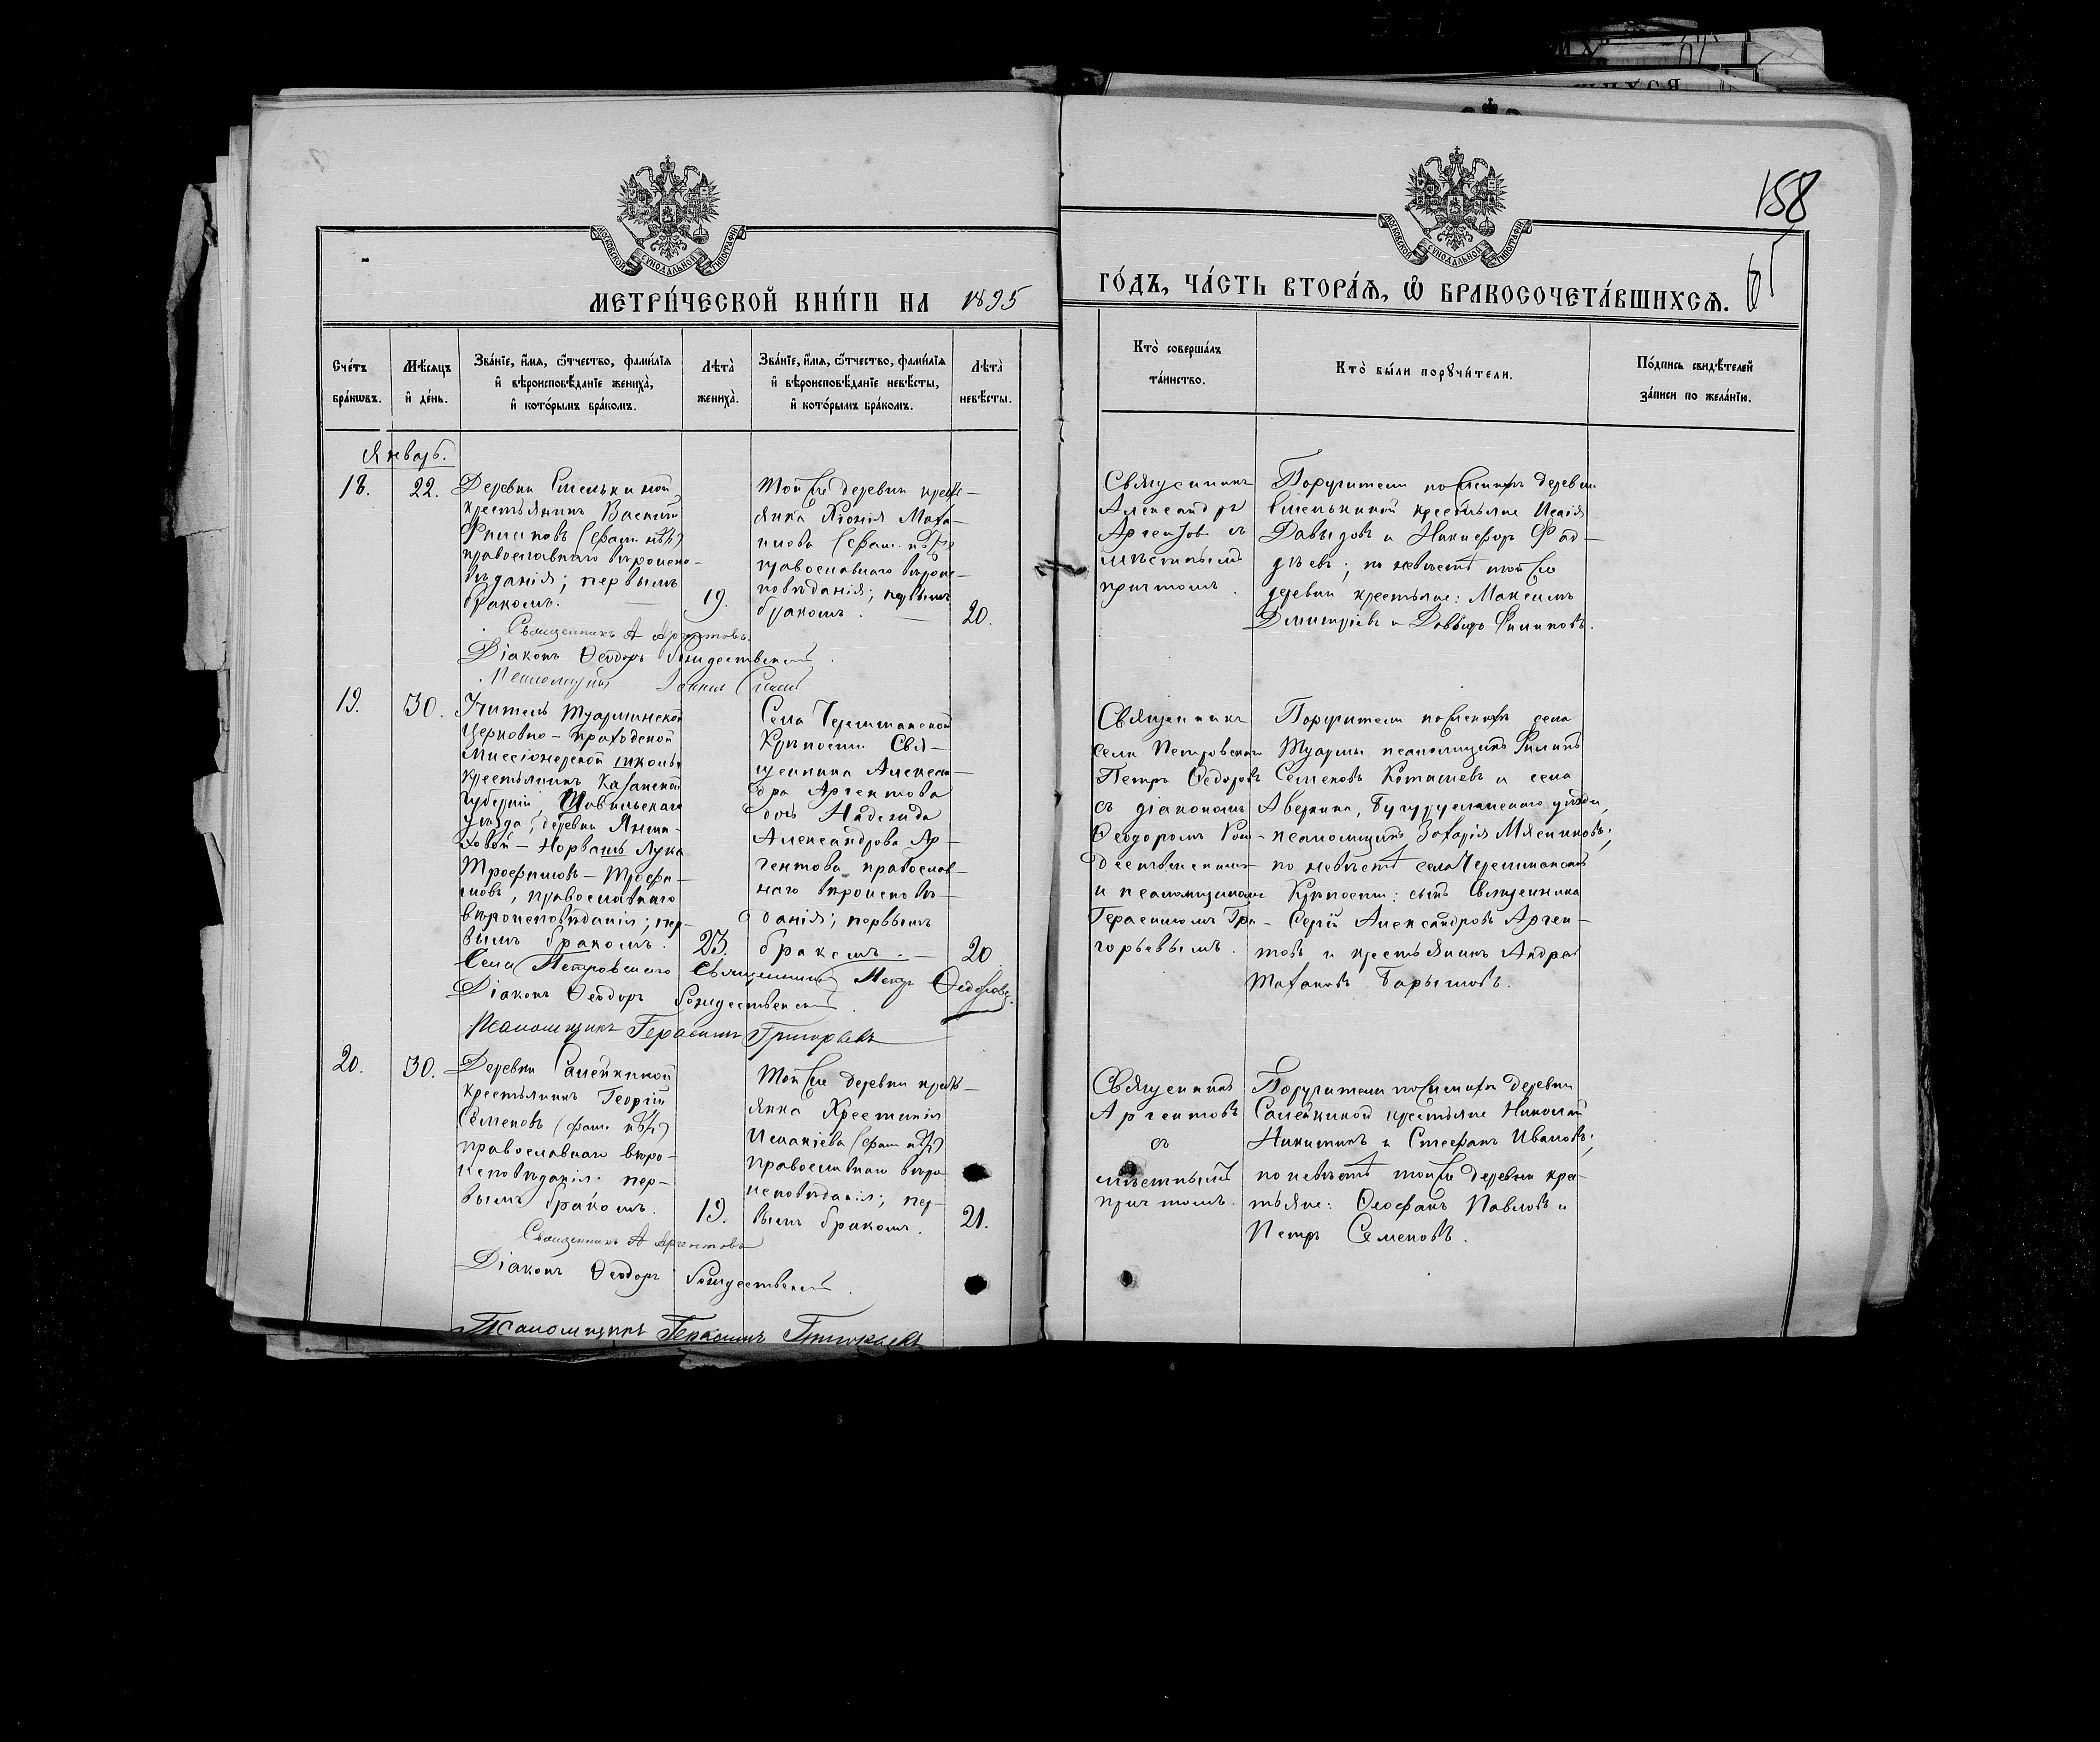 158
61
МЕТРИ́ЧЕСКОЙ КНИ́ГИ НА 1895
ГО́ДЪ, ЧА́СТЬ ВТОРА́Я, Ѽ БРАКОСОЧЕТА́ВШИХСЯ.
МОСКОВСКОЙ СѴНОДАЛЬНОЙ ТИПОГРАФІИ
МОСКОВСКОЙ СѴНОДАЛЬНОЙ ТИПОГРАФІИ
Сче́тъ бра́кѡвъ.
Мѣ́сяцъ и҆ де́нь.
Зва́нїе, и҆́мя, ѻ҆́тчество, фами́лїя
и҆ вѣроисповѣ́данїе жениха̀,
и҆ кото́рымъ бра́комъ.
Лѣта̀ жениха̀.
Зва́нїе, и҆́мя, ѻ҆́тчество, фами́лїя
и҆ вѣроисповѣ́данїе невѣ́сты,
и҆ кото́рымъ бра́комъ.
Лѣта̀ невѣ́сты.
Кто̀ соверша́лъ
та́инство.
Кто̀ бы́ли порꙋчи́тели.
По́дпись свидѣ́телей
за́писи по жела́нїю.
Январь.
18.
22.
Деревни
крестьянинъ Василій
Филиповъ (фам. нѣтъ)
православнаго вѣроиспо-
вѣданія; первымъ
бракомъ.
19.
Той же деревни кресть-
янка Хіонія
(фам. нѣтъ)
православнаго вѣроис-
повѣданія; первымъ
бракомъ.
20.
Священникъ
Александръ
Аргентовъ съ
мѣстнымъ
причтомъ.
Поручители по женихѣ деревни
крестьяне Исаія
Давыдовъ и Никифоръ Фад-
дѣевъ; по невѣстѣ той же
деревни крестьяне: Максимъ
Димитріевъ и Давыдъ Филиповъ.
Священникъ А Аргентовъ.
Діаконъ Ѳеодоръ Рождественскій.
19.
30.
Учитель Туарминской
Церковно-приходской
Миссіонерской школы
крестьянинъ Казанской
Губерніи,
уѣзда, деревни Янши-
ховой-Норвашъ Лука
Трофимовъ-Трофи-
мовъ, православнаго
вѣроисповѣданія; пер-
вымъ бракомъ.
23.
Села Черемшанской
Крѣпости Свя-
щенника Алексан-
дра Аргентова
дочь Надежда
Александрова Ар-
гентова православ-
наго вѣроисповѣ-
данія; первымъ
бракомъ.
20
Священникъ
села Петровскаго
Петръ Ѳедоровъ
съ діакономъ
Ѳеодоромъ Рож-
дественскимъ
и псаломщикомъ
Герасимомъ Гри-
горьевымъ.
Поручители по женихѣ села
Туармы псаломщикъ Филипъ
Семеновъ и села
Аверкина, Бугурусланскаго уѣзда,
псаломщикъ Захарія Мясниковъ;
по невѣстѣ села Черемшанской
Крѣпости: сынъ Священника
Сергій Александровъ Арген-
товъ и крестьянинъ Андрей
Барышовъ.
Села Петровскаго Священникъ Петръ Ѳедоровъ.
Діаконъ Ѳеодоръ Рождественскій.
Псаломщикъ Герасимъ Григорьевъ
20.
30.
Деревни Самейкиной
крестьянинъ Георгій
Семеновъ (фам. нѣтъ)
православнаго вѣро-
исповѣданія пер-
вымъ бракомъ.
19.
Той же деревни кресть-
янка Хрестинія
(фам нѣтъ)
православнаго вѣро
исповѣданія; пер-
вымъ бракомъ.
21.
Священникъ
Аргентовъ
съ
мѣстнымъ
причтомъ.
Поручители по женихѣ деревни
Самейкиной крестьяне Николай
Никитинъ и Стефанъ Ивановъ;
по невѣстѣ той же деревни крес-
тьяне: Ѳеофанъ Павловъ и
Петръ Семеновъ.
Священникъ А Аргентовъ
Діаконъ Ѳеодоръ Рождественскій.
Псаломщикъ Герасимъ Григорьевъ